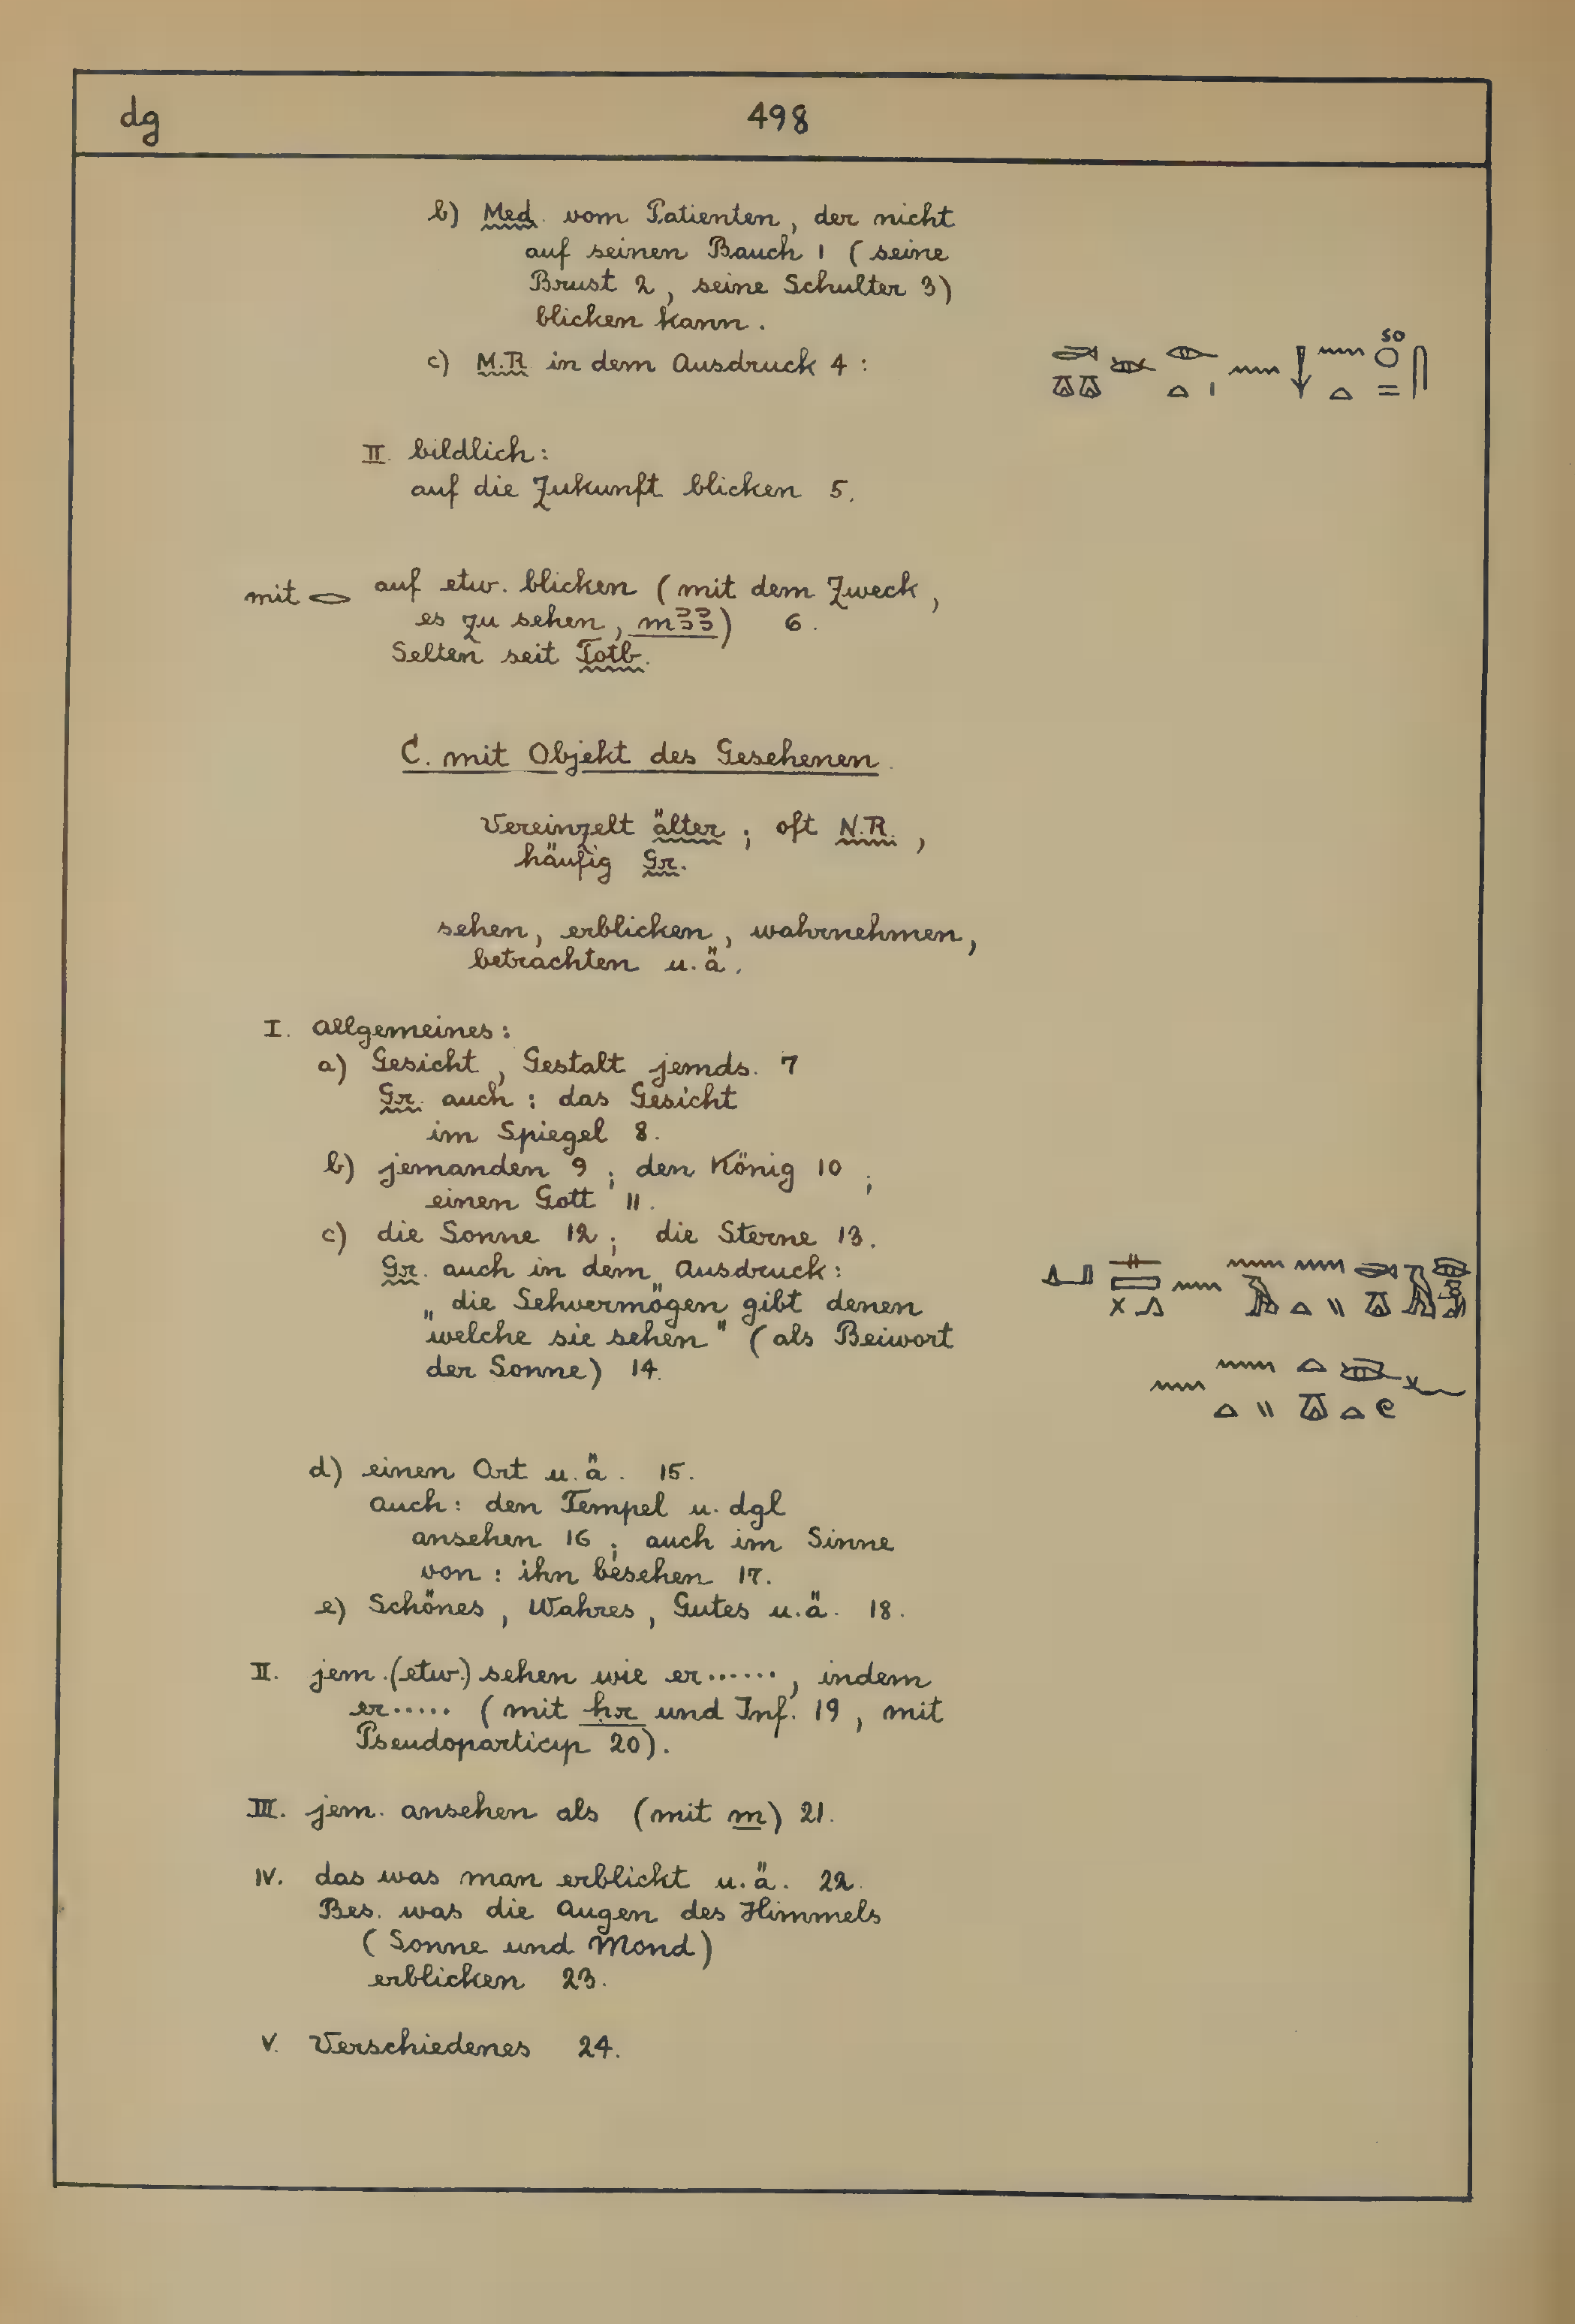 dg 498
b) Med. vom Patienten, der nicht
auf seinen Bauch 1 (seine
Brust 2, seine Schulter 3)
blicken kann.
c) M.R. in dem Ausdruck 4 :
so
II. bildlich:
auf die Zukunft blicken 5.
mit 𓂋 auf etw. blicken (mit dem Zweck,
es zu sehen, mꜣꜣ) 6.
Selten seit Totb.
C. mit Objekt des Gesehenen.
Vereinzelt älter; oft N.R.,
häufig Gr.
sehen, erblicken, wahrnehmen,
betrachten u.ä.
I. allgemeines:
a) Gesicht, Gestalt jemds. 7
Gr. auch: das Gesicht
im Spiegel 8.
b) jemanden 9; den König 10;
einen Gott 11.
c) die Sonne 12; die Sterne 13.
Gr. auch in dem Ausdruck:
„die Sehvermögen gibt denen
welche sie sehen" (als Beiwort
der Sonne) 14.
d) einen Ort u.ä. 15.
auch: den Tempel u. dgl
ansehen 16; auch im Sinne
von: ihn besehen 17.
e) Schönes, Wahres, Gutes u.ä. 18.
II. jem. (etw.) sehen wie er......, indem
er..... (mit ḥr und Inf. 19, mit
Pseudoparticip 20).
III. jem. ansehen als (mit m) 21.
IV. das was man erblickt u.ä. 22.
Bes. was die Augen des Himmels
(Sonne und Mond)
erblicken 23.
V. Verschiedenes 24.